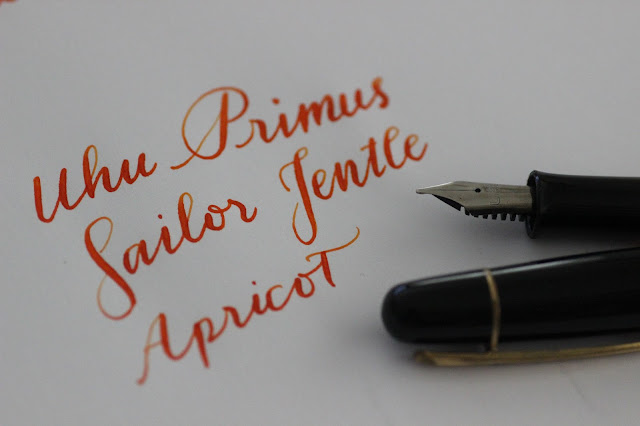 Uhu Primus
Sailor Jentle
Apricot